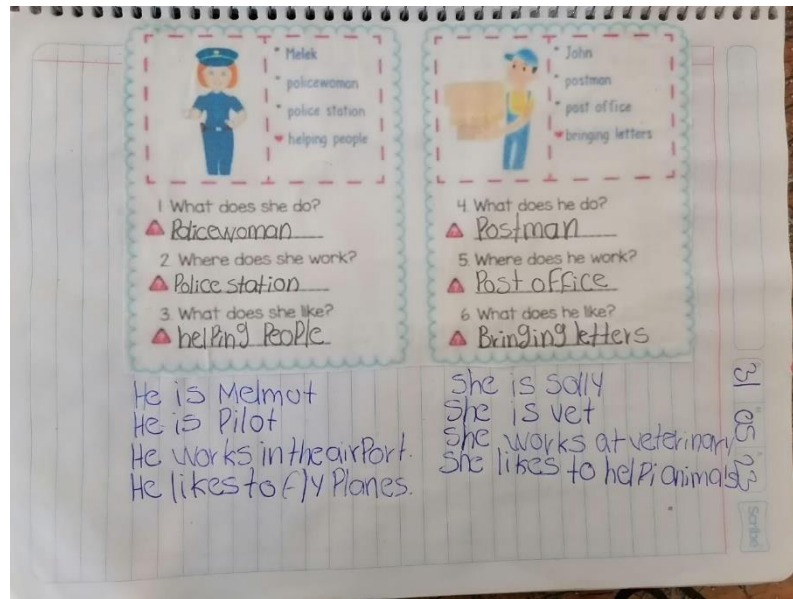 * Melek
* policewoman
* police station
♥ helping people
1 What does she do?
Policewoman
2. Where does she work?
Police station
3. What does she like?
helping People
* John
* postman
* post office
♥ bringing letters
4. What does he do?
Postman
5. Where does he work?
Post office
6. What does he like?
Bringing letters
He is Melmot
He is Pilot
He works in the airPort.
He likes to fly Planes.
She is sally
She is vet
She works at veterinary
She likes to help animals
31 05 23
Scribe